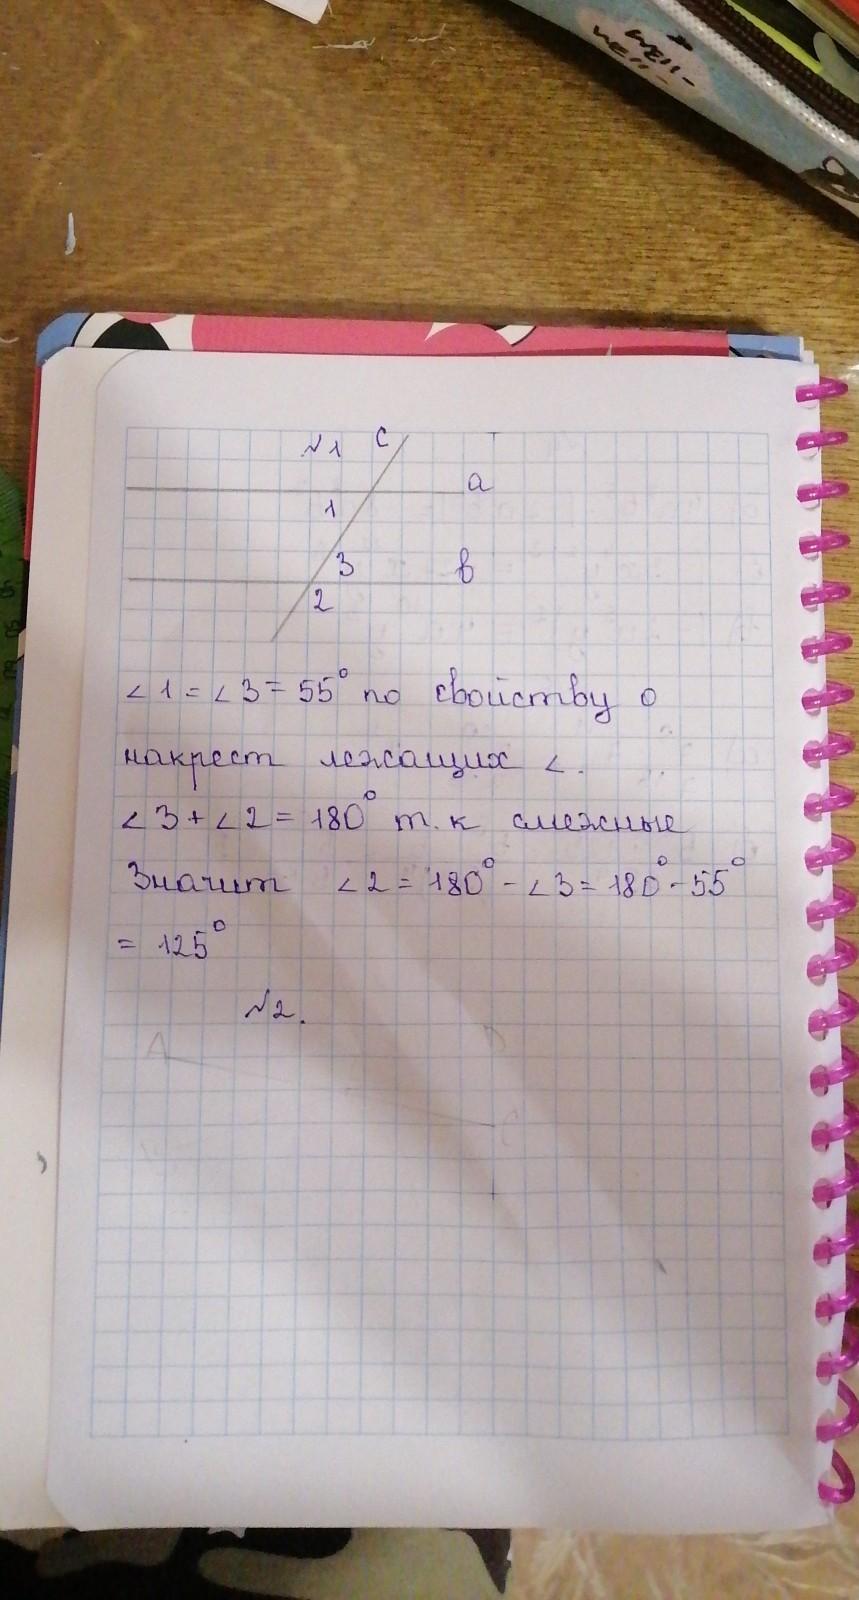 №1
c
a
1
3
в
2
∠1 = ∠3 = 55° по свойству о
накрест лежащих ∠.
∠3 + ∠2 = 180° т.к смежные
Значит ∠2 = 180° - ∠3 = 180° - 55°
= 125°
№2.
A
C